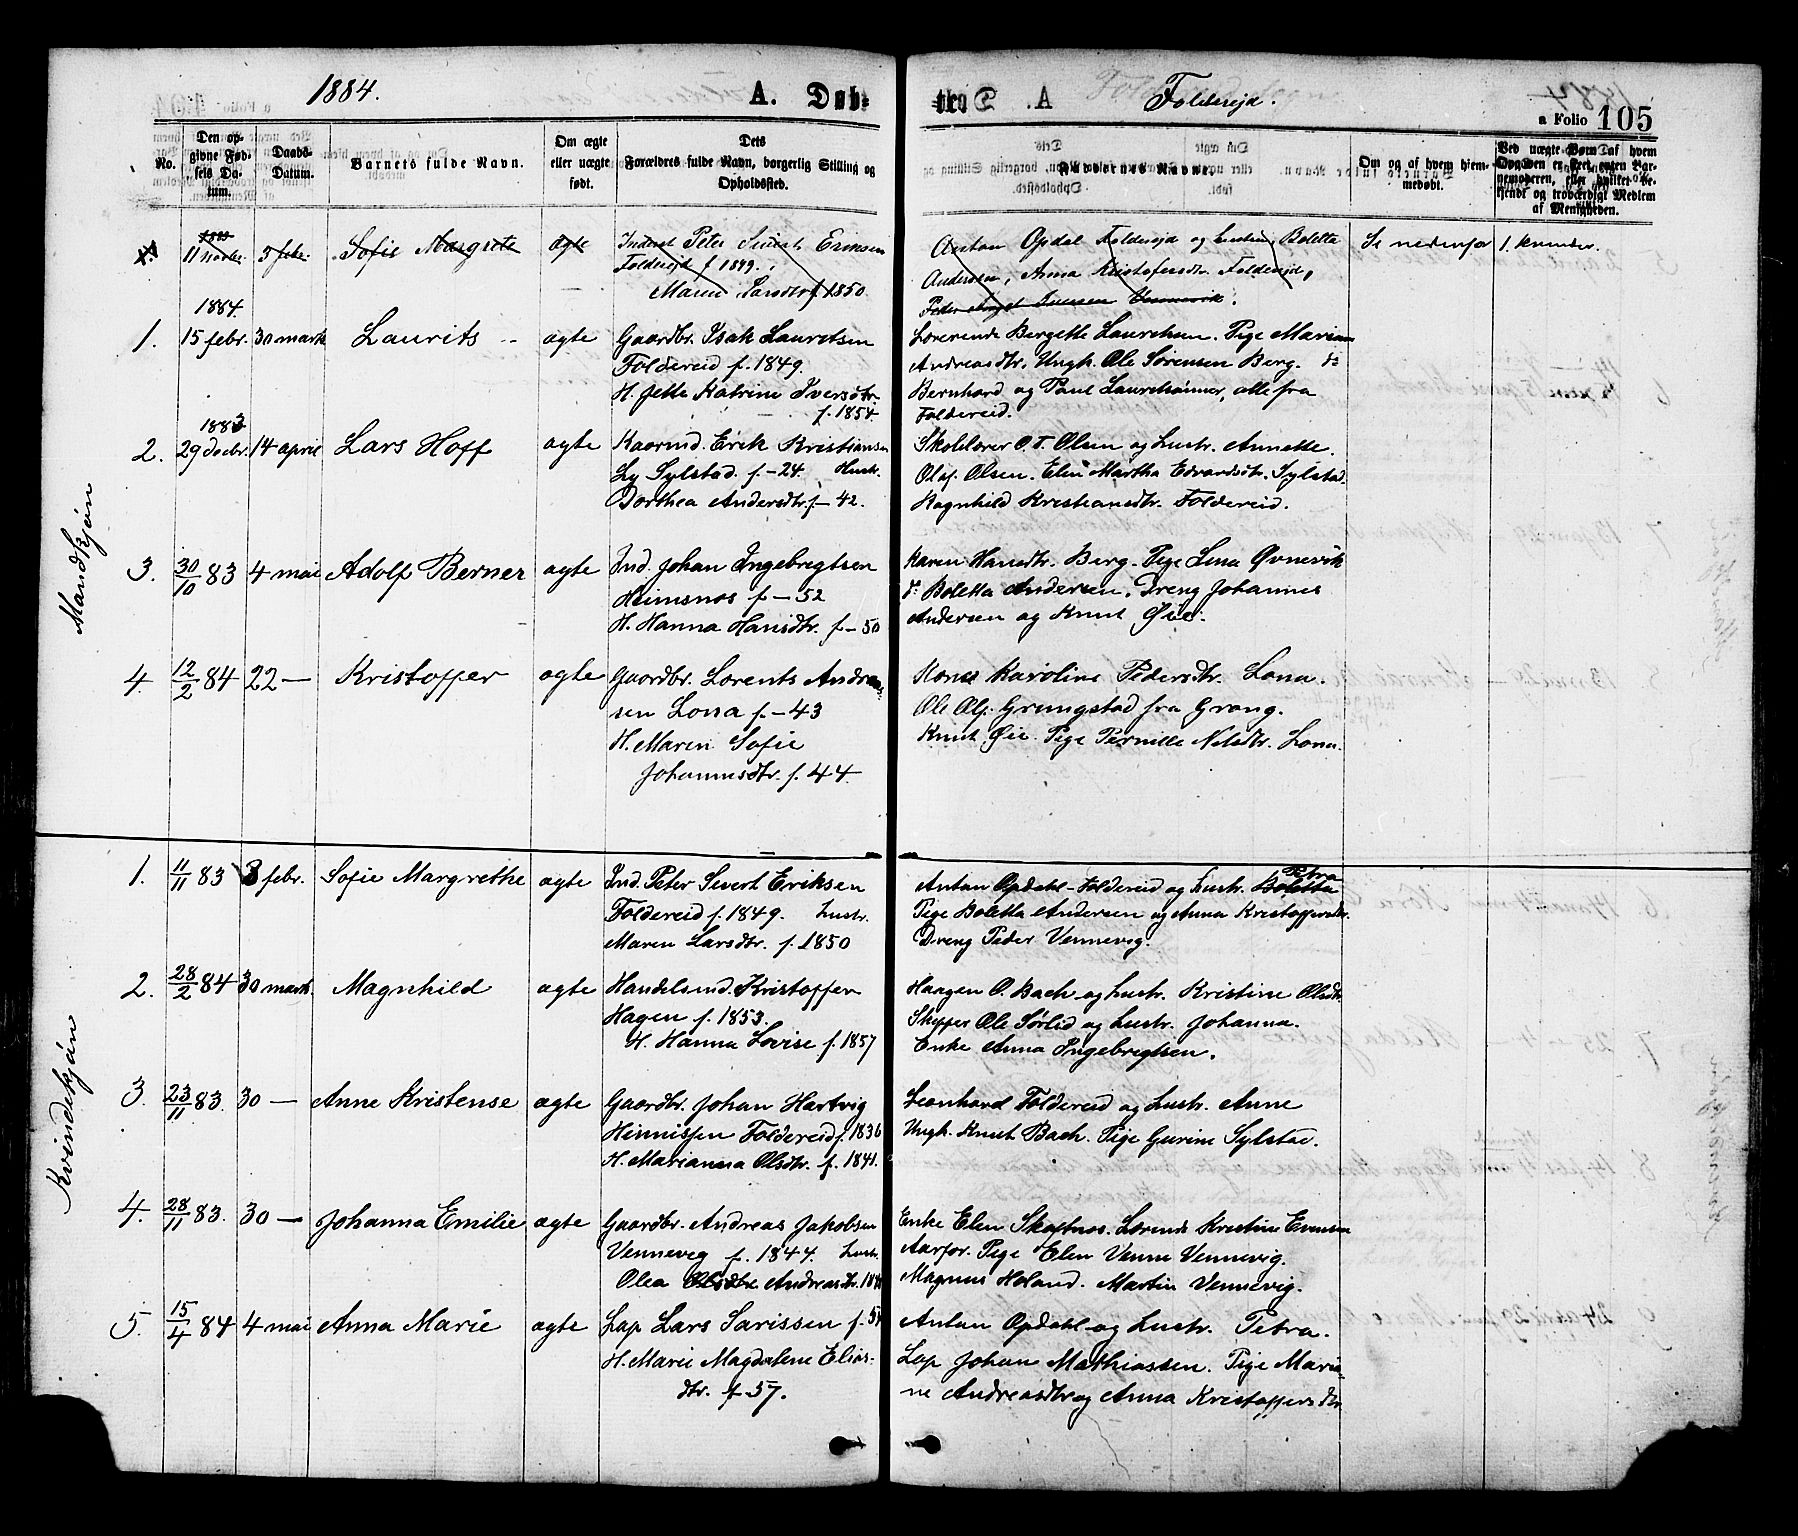 1884.
A. Døb-
A.
Foldereid.
a Folio 105
No.
Den op-
givne Fød-
sels Da-
tum.
Daabs-
Datum.
Barnets fulde Navn.
Om ægte
eller uægte
født.
Dets
Forældres fulde Navn, borgerlig Stilling og
Opholdssted.
Faddernes Navne.
Om og af hvem hjem-
medøbt.
Ved uægte Børn af hvem
Opgiven er skeet, enten Bar-
nemoderen, eller hvilket be-
kjendt og troværdigt Medlem
af Menigheden.
1883
11 novbr. 3 febr. Sofie Margrete ægte Inderst Peter Sivert Eriksen
Foldereid f 1849.
Maren Larsdtr f 1850
Anton Opdal Foldereid og hustru Boletta
Andersen, Anna Kristofersdtr. Foldereid,
Peder Vennevik.
Se nedenfor 1. kvinder.
Mandkjøn
1884.
1. 15 febr. 30 marts Laurits ægte Gaardbr. Isak Lauritsen
Foldereid f. 1849.
H. Jette Katrine Iversdtr.
f. 1854.
Lærerinde Bergette Lauritsen. Pige Marian
Andreasdtr. Ungk. Ole Sørensen Berg. do
Bernhard og Paul Lauritsønner, alle fra
Foldereid.
1883
2. 29 decbr. 14 april Lars Hoff ægte Kaarmd. Erik Kristiansen
Ly Sylstad. f. -24. Hust.
Dorthea Andersdtr. f - 42.
Skolelærer O. T. Olsen og hustr. Annette.
Olaf Olsen. Elen Martha Edvardsdtr. Sylstad.
Ragnhild Kristiansdtr. Foldereid.
3. 30/10 83 4 mai Adolf Berner ægte Ind. Johan Ingebregtsen
Heimsnes f - 52
H. Hanna Hansdtr. f - 50
Karen Hansdtr. Berg. Pige Lina Øvnevik
do Boletta Andersen. Dreng Johannes
Andersen og Knut Øie.
4. 12/2 84 22 — Kristoffer ægte Gaardbr. Lorents Andrea
sen Lona f. - 43
H. Maren Sofie
Johannesdtr. f. 44.
Kone Karoline Pedersdtr. Lona.
Ole Olf. Grungstad fra Grong.
Knut Øie Pige Pernille Nilsdtr. Lona.
Kvindekjøn
1. 11/11 83 3 febr. Sofie Margrethe ægte Ind. Peter Sivert Eriksen
Foldereid f. 1849. hustr.
Maren Larsdtr. f. 1850
Petra
Anton Opdahl - Foldereid og hustr. Boletta
Pige Boletta Andersen og Anna Kristoffersdtr.
Dreng Peder Vennevig.
2. 28/2 84 30 marts. Magnhild ægte Handelsmd. Kristoffer
Hagen f. 1853.
H. Hanna Lovise f. 1857
Haagen O. Bach og hustr. Kristine Olsdtr.
Skipper Ole Sørlid og hustr. Johanna.
Enke Anna Ingebregtsen.
3. 23/11 83. 30 — Anne Kristense ægte Gaardbr. Johan Hartvig
Henrissen Foldereid f. 1836
H. Marianna Olsdtr. f. 1841.
Leonhard Foldereid og hustr. Anne
Ungk. Knut Bach. Pige Gurine Sylstad.
4. 28/11 83. 30 — Johanna Emilie ægte Gaardbr. Andreas Jakobsen
Vennevig f. 1844. hustr.
Olea Olsdtr Andreasdtr. 184
Enke Elen Skaftnes. Lærerinde Kristine Evensen
Aarfor. Pige Elen Venne Vennevig.
Magnus Holand. Martin Vennevig.
5. 15/4 84 4 mai Anna Marie ægte Lap Lars Sarissen f. 54
H. Marie Magdalene Elias-
dtr. f - 57.
Anton Opdahl og hustr. Petra.
Lap Johan Mathiassen. Pige Maria-
ne Andreasdtr og Anna Kristoffersdtr